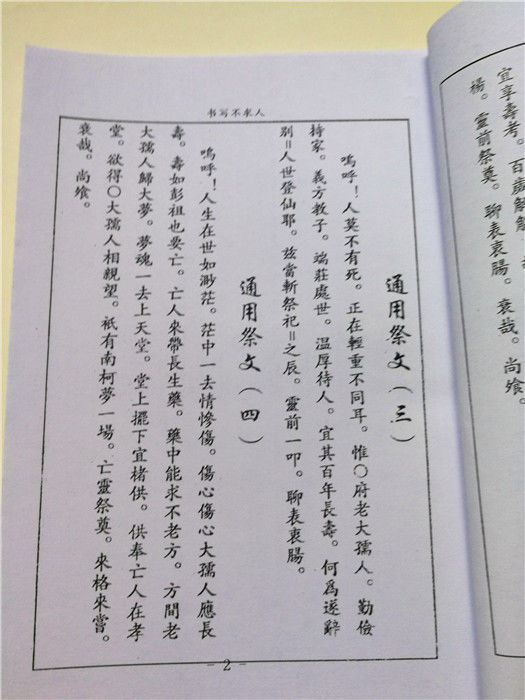 宜享壽考。百歲
楊。靈前祭奠。聊表衷腸。哀哉。尚饗。
书写不求人
通用祭文（三）
嗚呼！人莫不有死。正在輕重不同耳。惟〇府老大孺人。勤儉
持家。義方教子。端莊處世。溫厚待人。宜其百年長壽。何爲遂辭
别＝人世登仙耶。兹當斬祭祀＝之辰。靈前一叩。聊表衷腸。
通用祭文（四）
嗚呼！人生在世如渺茫。茫中一去情慘傷。傷心傷心大孺人應長
壽。壽如彭祖也要亡。亡人來帶長生藥。藥中能求不老方。方間老
大孺人歸大夢。夢魂一去上天堂。堂上擺下宜楮供。供奉亡人在孝
堂。欲得〇大孺人相親望。祇有南柯夢一場。亡靈祭奠。來格來嘗。
哀哉。尚饗。
- 2 -